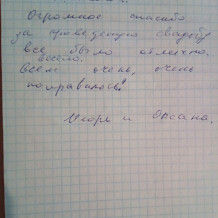 Огромное спасибо
за проведенную свадьбу
все было отлично.
весело.
Всем очень, очень
понравилось!
Игорь и Оксана.